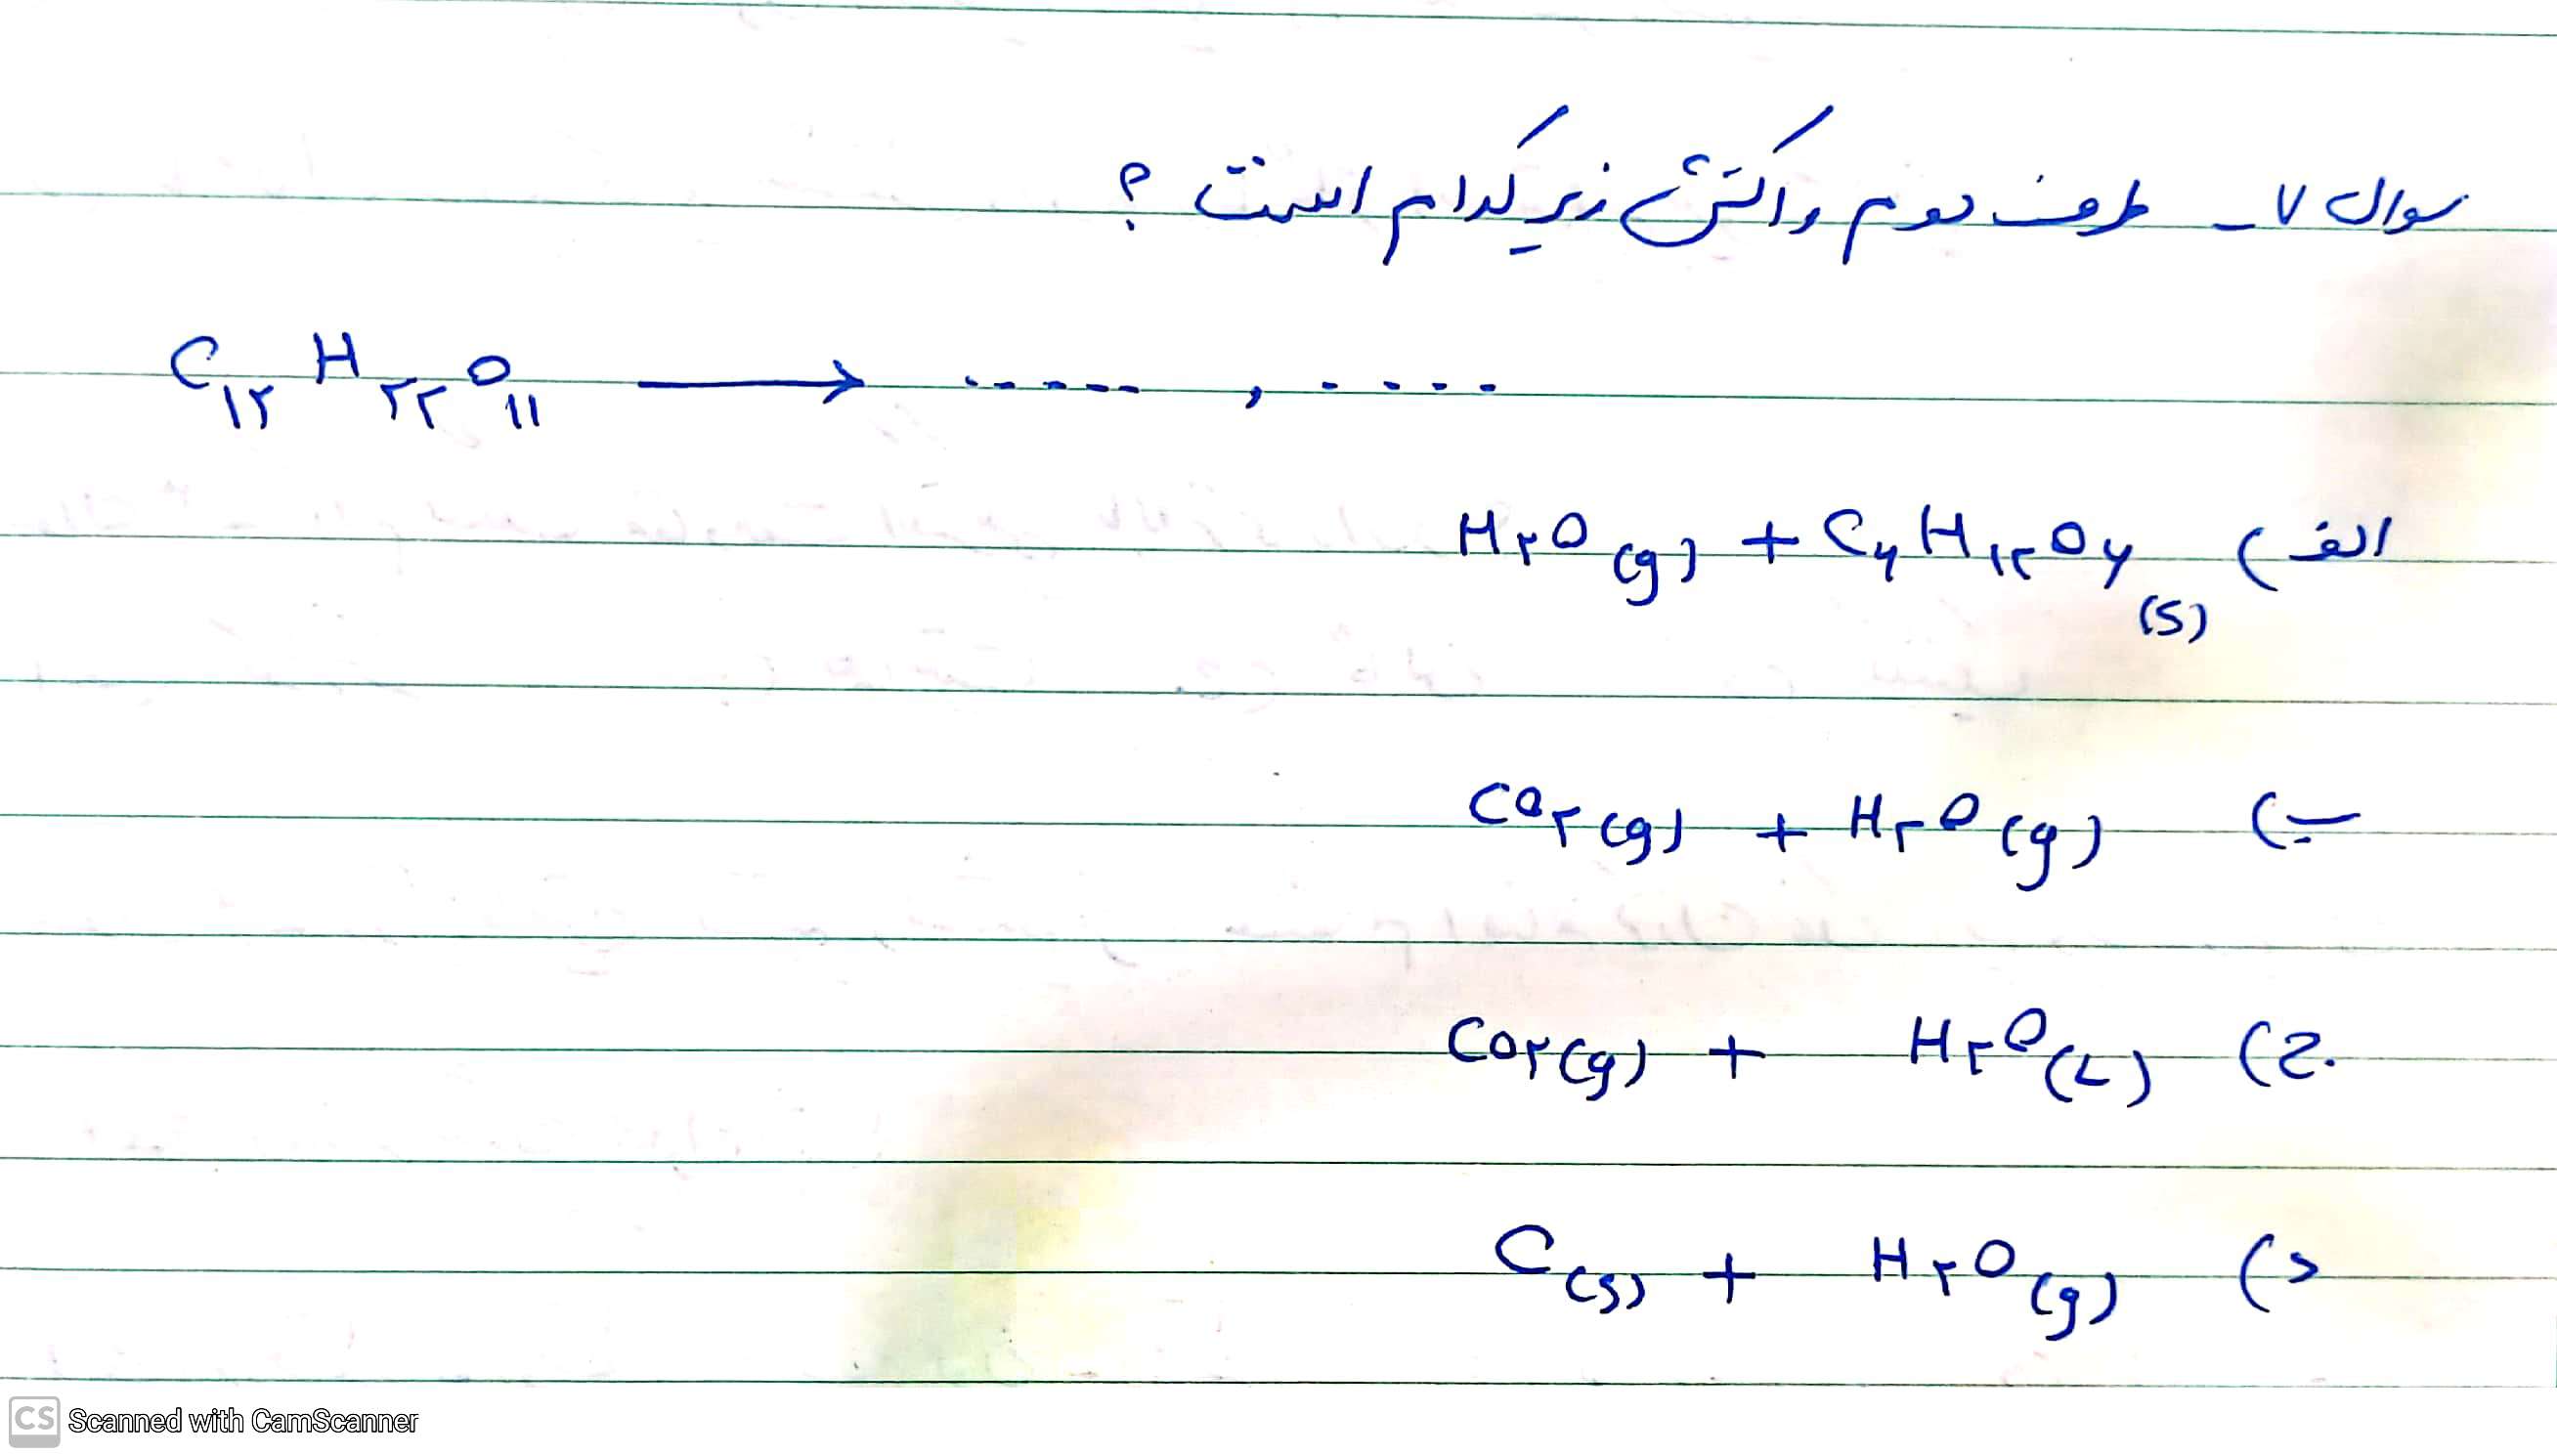 سوال ۷_ طرف دوم واکنش زیر کدام است ؟
C۱۲ H۲۲ O۱۱ → ..... , .....
الف) H۲O (g) + C۶ H۱۲ O۶ (s)
ب) CO۲ (g) + H۲O (g)
ج) CO۲ (g) + H۲O (L)
د) C (s) + H۲O (g)
CS Scanned with CamScanner